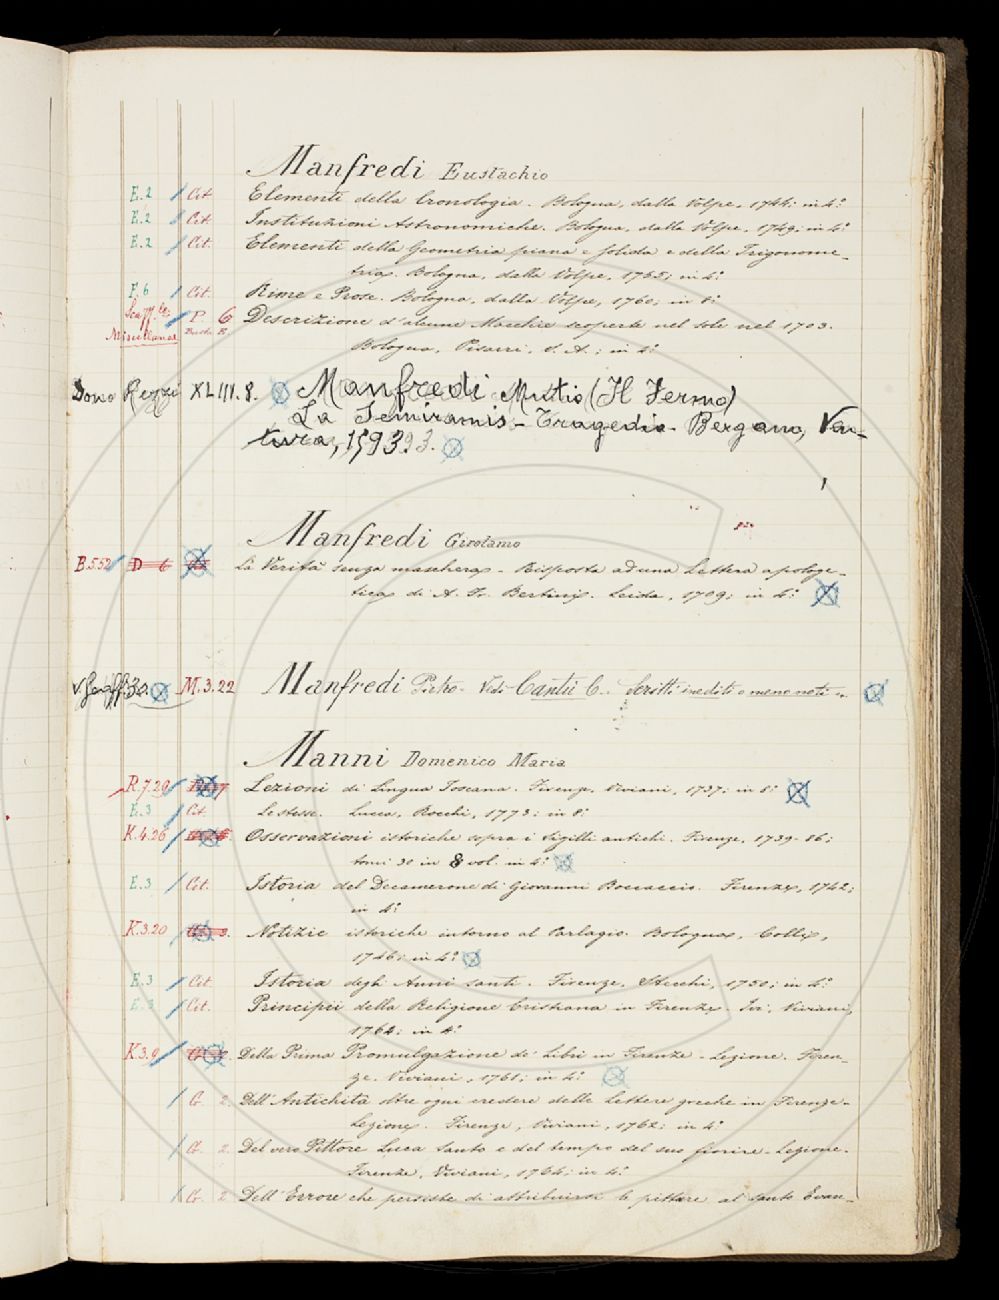 Manfredi Eustachio
E.2 Cit. Elementi della Cronologia. Bologna, dalla Volpe, 1744; in 4.°
E.2 Cit. Instituzioni Astronomiche. Bologna, dalla Volpe, 1749; in 4.°
E.2 Cit. Elementi della Geometria piana e solida e della Trigonome-
tria. Bologna, dalla Volpe, 1765; in 4.°
F.6 Cit. Rime e Prose. Bologna, dalla Volpe, 1760; in 8.°
P. 6 Descrizione d'alcune Macchie scoperte nel sole nel 1703.
Miscellanea Bologna, Pisarri, S. A.; in 4.°
Dono Rezzi XLIII.8. Manfredi Muttio (Il Fermo)
La Semiramis - Tragedia - Bergamo, Ven-
tura, 1593
Manfredi Girolamo
B.552 D 6 La Verità senza maschera - Risposta ad una Lettera apologe-
tica di A. Fr. Bertini. Leida, 1709; in 4.°
M.3.22 Manfredi Pietro - Vedi Cantù C.. Scritti inediti o meno noti -
Manni Domenico Maria
R.7.29 Lezioni di Lingua Toscana. Firenze, Viviani, 1737; in 8.°
E.3 Cit. Le stesse. Lucca, Rocchi, 1773; in 8.°
K.4.26 Osservazioni istoriche sopra i Sigilli antichi. Firenze, 1739-86;
tomi 30 in 8 vol. in 4.°
E.3 Cit. Istoria del Decamerone di Giovanni Boccaccio. Firenze, 1742;
in 4.°
K.3.20 Notizie istoriche intorno al Parlagio. Bologna, Colli,
1746; in 4.°
E.3 Cit. Istoria degli Anni santi. Firenze, Stecchi, 1750; in 4.°
E.3 Cit. Principii della Religione Cristiana in Firenze. Ivi, Viviani,
1764; in 4.°
K.3.9 Della Prima Promulgazione de' Libri in Firenze - Lezione. Firen-
ze. Viviani, 1761; in 4.°
G. 2. Dell'Antichità oltre ogni credere delle Lettere greche in Firenze -
Lezione. Firenze, Viviani, 1762; in 4.°
G. 2. Del vero Pittore Luca Santo e del tempo del suo fiorire - Lezione.
Firenze, Viviani, 1764; in 4.°
G. 2 Dell'Errore che persiste di attribuirsi le pitture al Santo Evan-